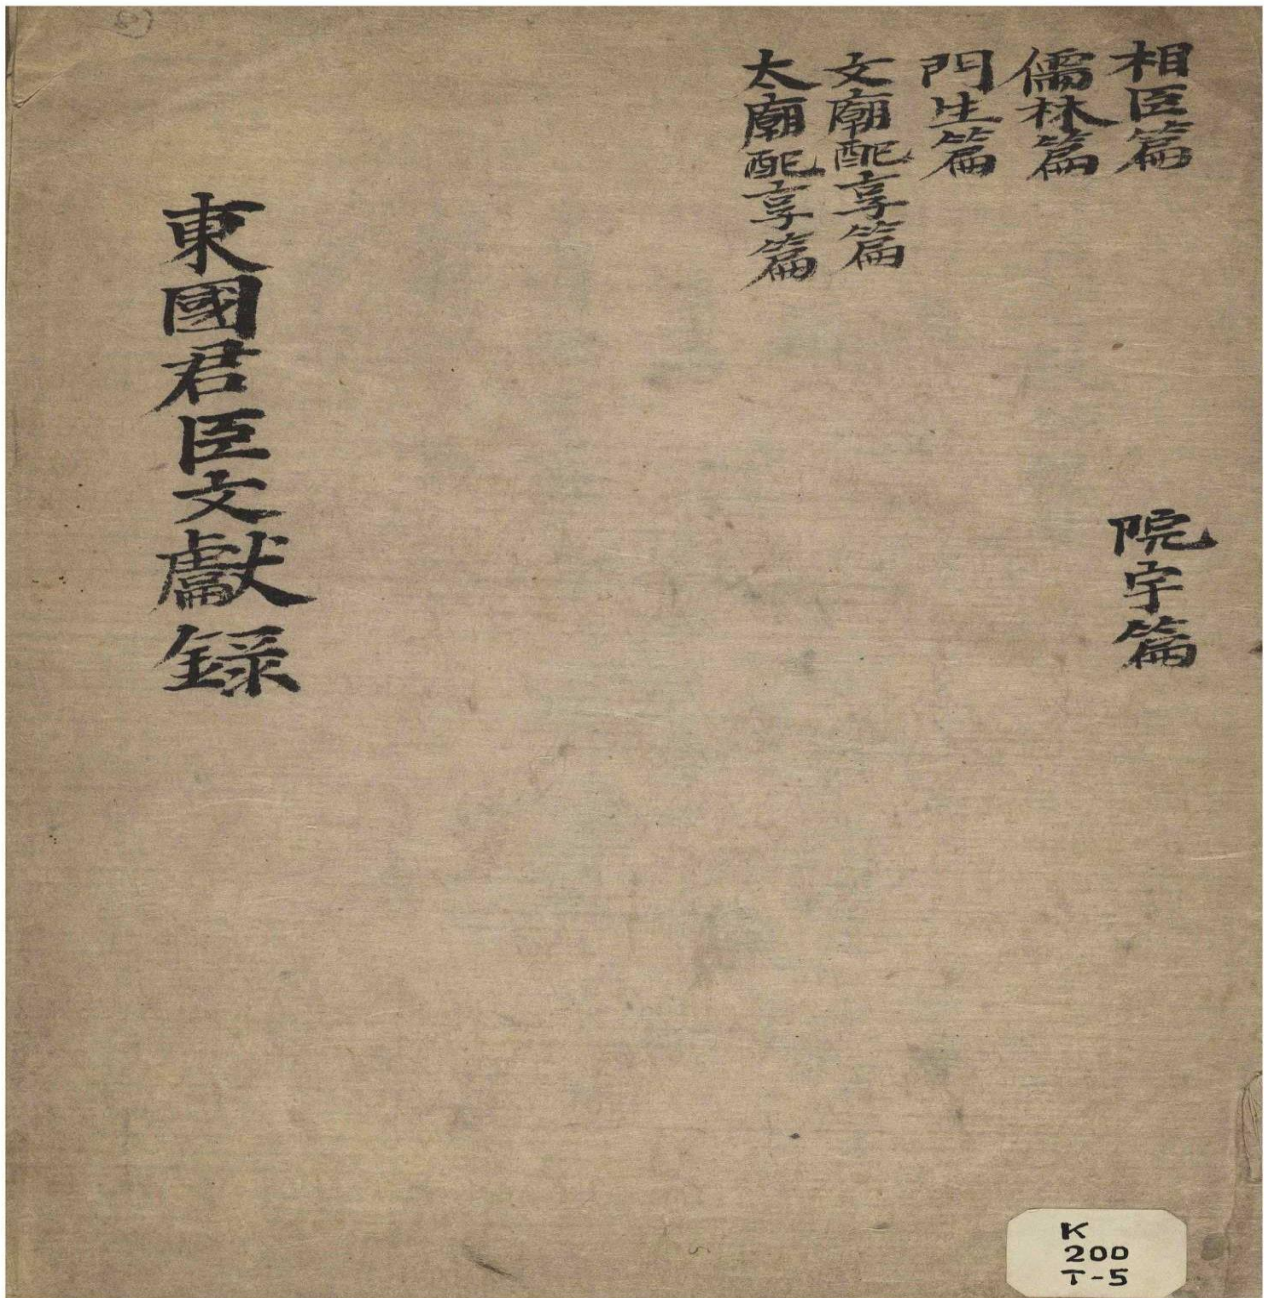 相臣篇
儒林篇
門生篇
文廟配享篇
太廟配享篇
院宇篇
東國君臣文獻録
K
200
T-5